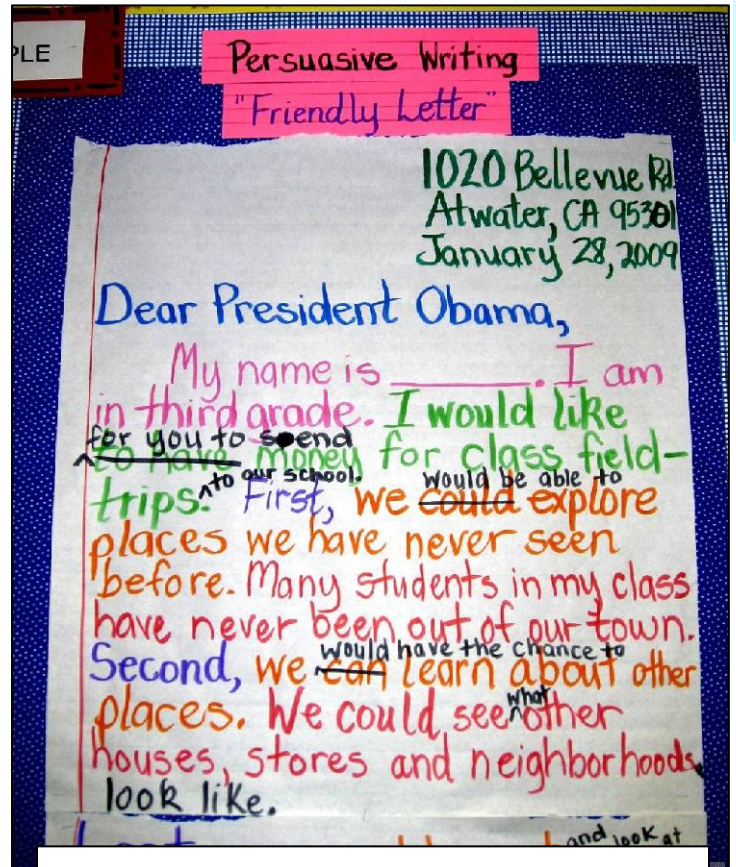 PLE
Persuasive Writing
"Friendly Letter"
1020 Bellevue Rd.
Atwater, CA 95301
January 28, 2009
Dear President Obama,
My name is ________. I am
in third grade. I would like
for you to spend
to have money for class field-
to our school. would be able to
trips. First, we could explore
places we have never seen
before. Many students in my class
have never been out of our town.
would have the chance to
Second, we can learn about other
what
places. We could see other
houses, stores and neighborhoods
look like.
and look at